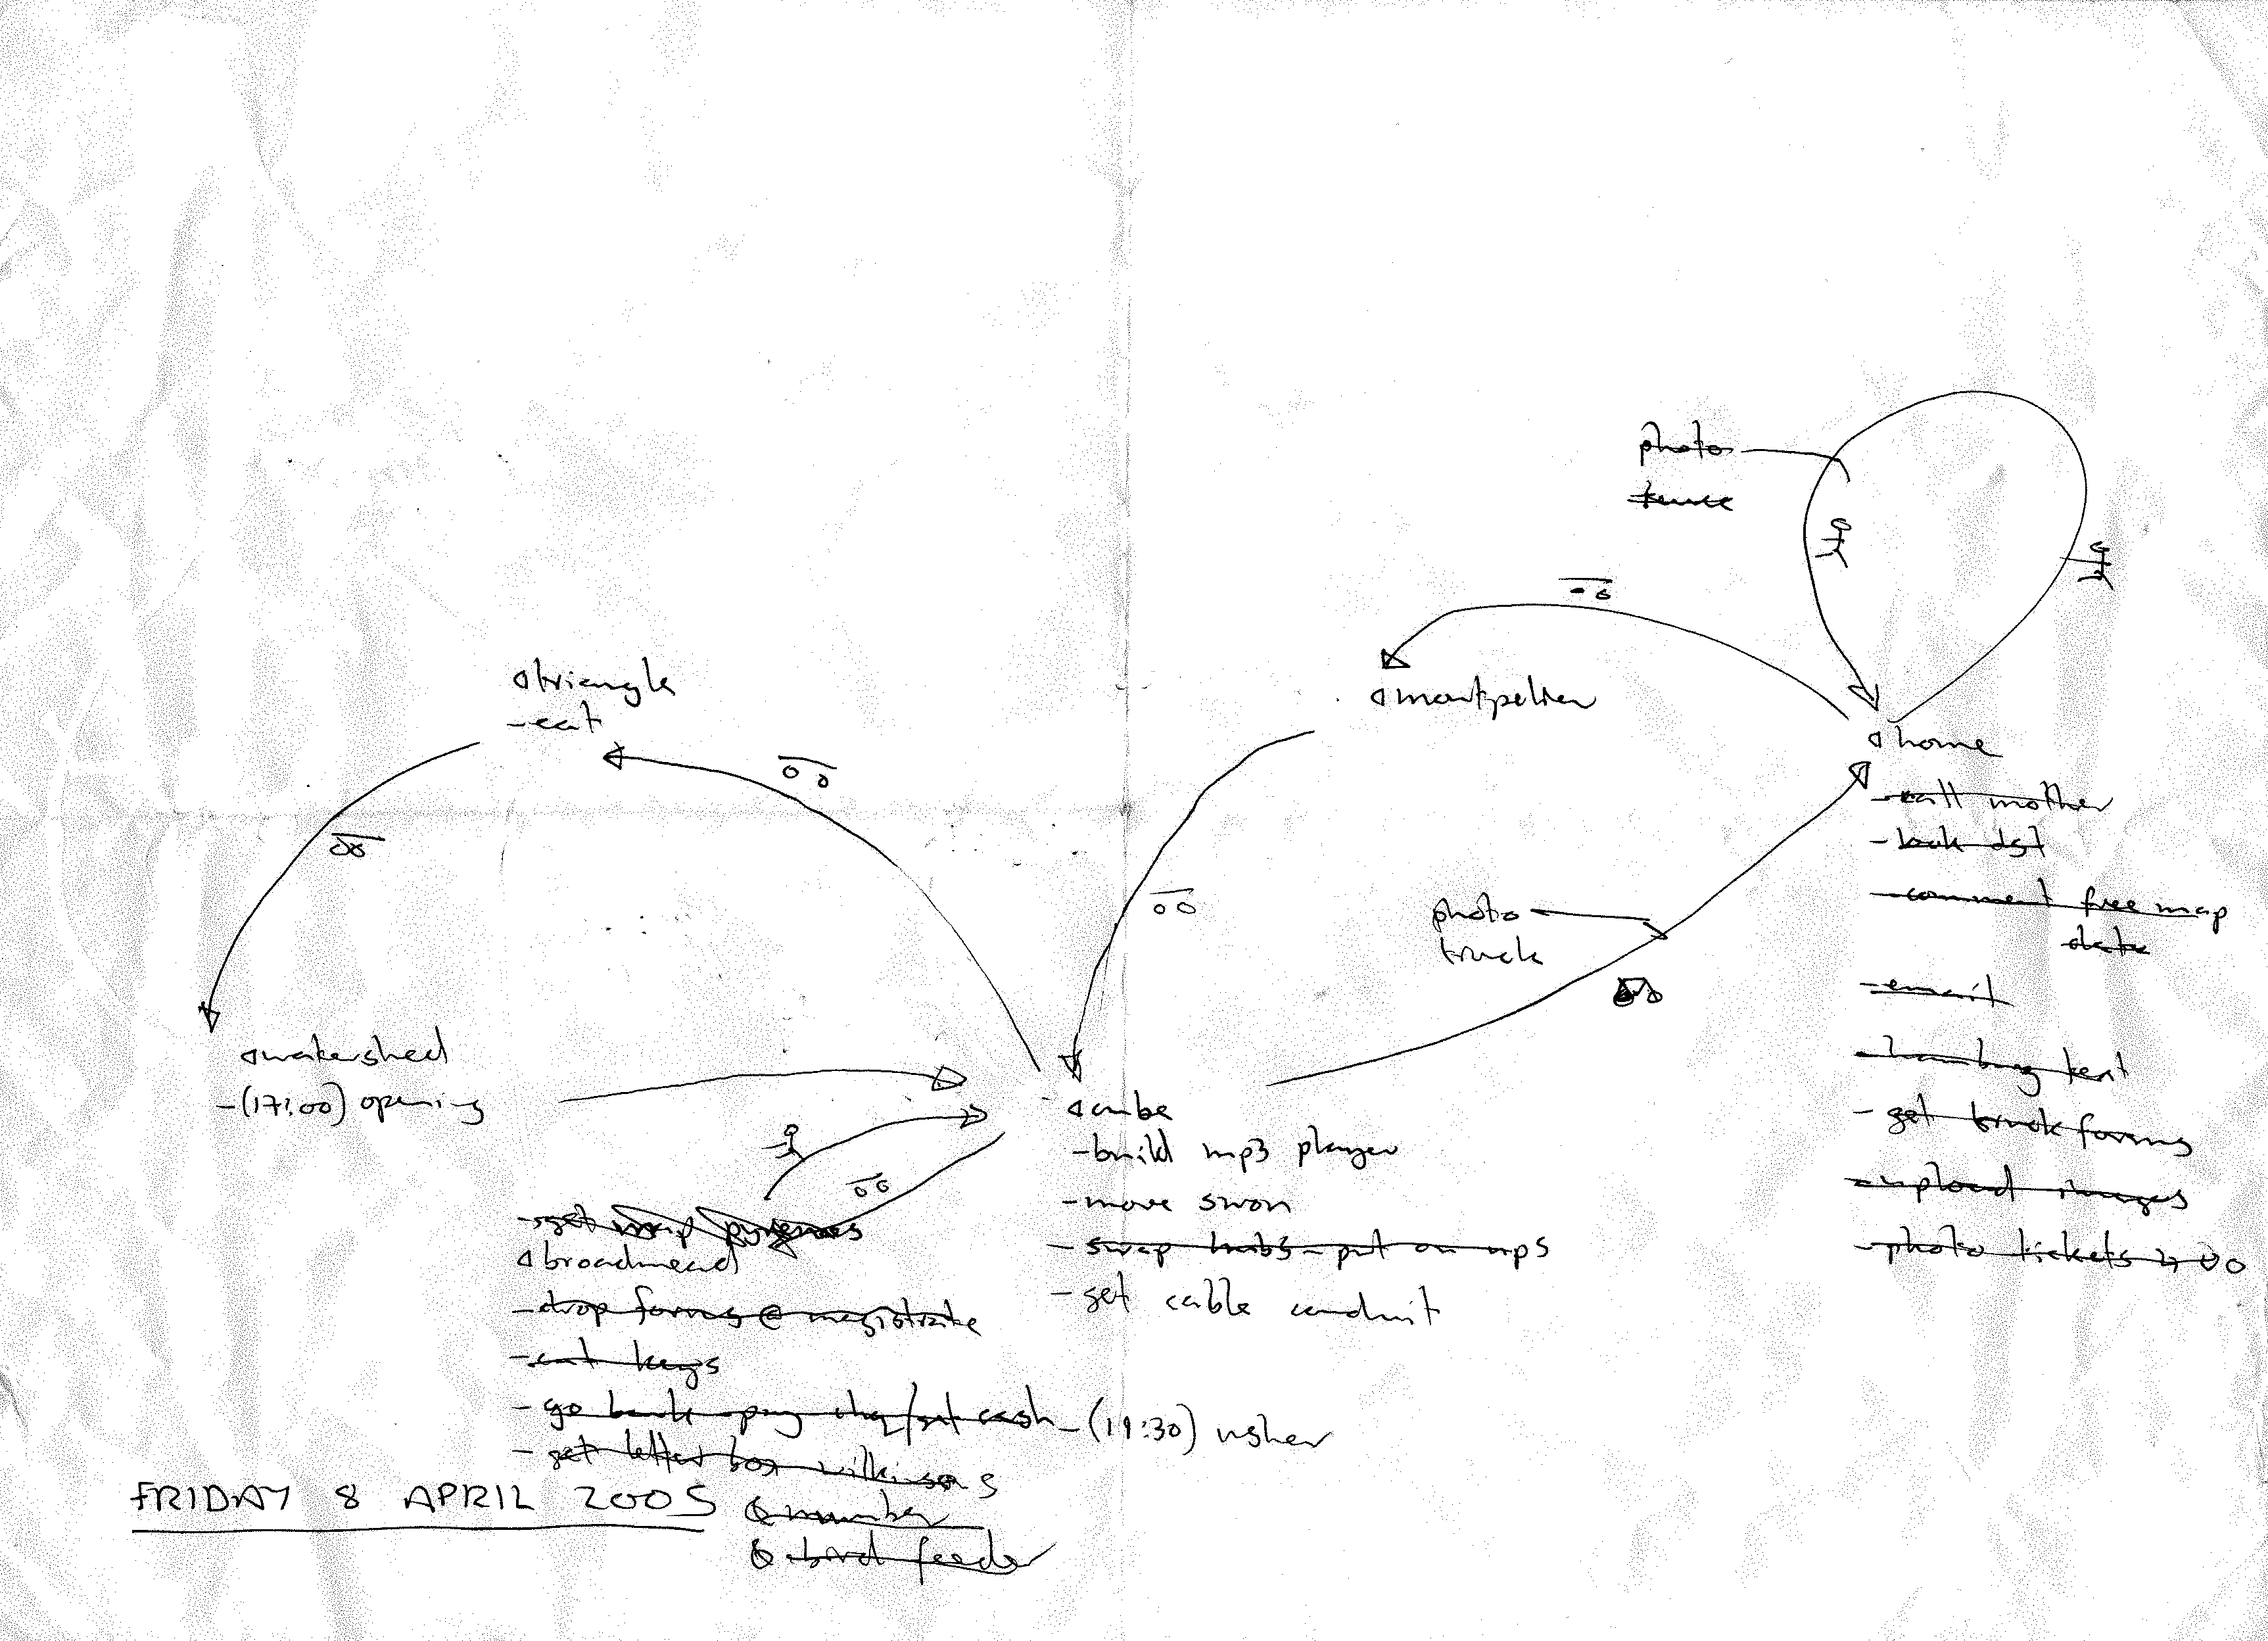 photo
fence
triangle
-eat
montpelier
home
-call mother
-book dgt
-comment free map
data
-email
-hamburg tent
-get truck forms
-upload images
-photo tickets
photo
truck
watershed
-(17:00) opening
cube
-build mp3 player
-move swon
-swap hubs - put on ups
-get cable conduit
-(19:30) usher
-get map pyrenees
broadmead
-drop forms @ magistrate
-cut keys
-go bank - pay chq/get cash
-get letter box wilkinsons
& number
& bird feeder
FRIDAY 8 APRIL 2005